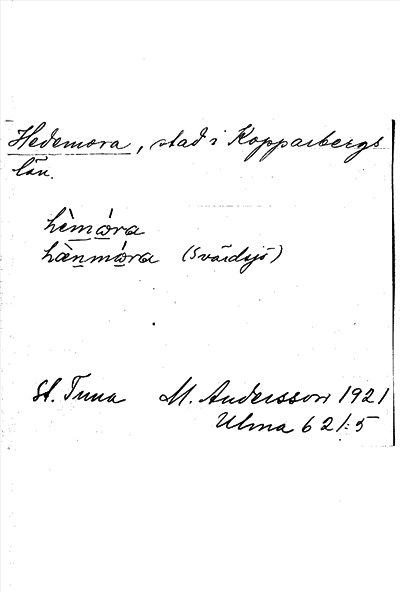 Hedemora, stad i Kopparbergs
län.
hèmὼ́ra
hænmὼ́ra (Svärdsjö)
St. Tuna M. Andersson 1921
Ulma 62:5